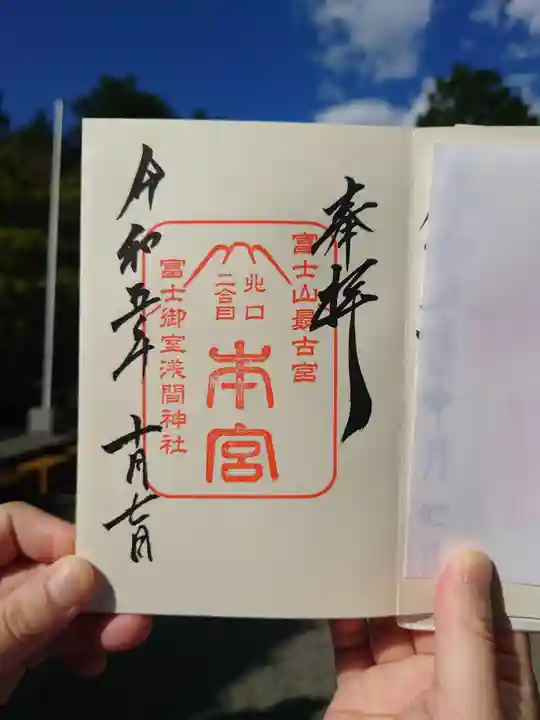 奉拝
富士山最古宮
北口
二合目
本宮
富士御室浅間神社
令和五年 十月七日